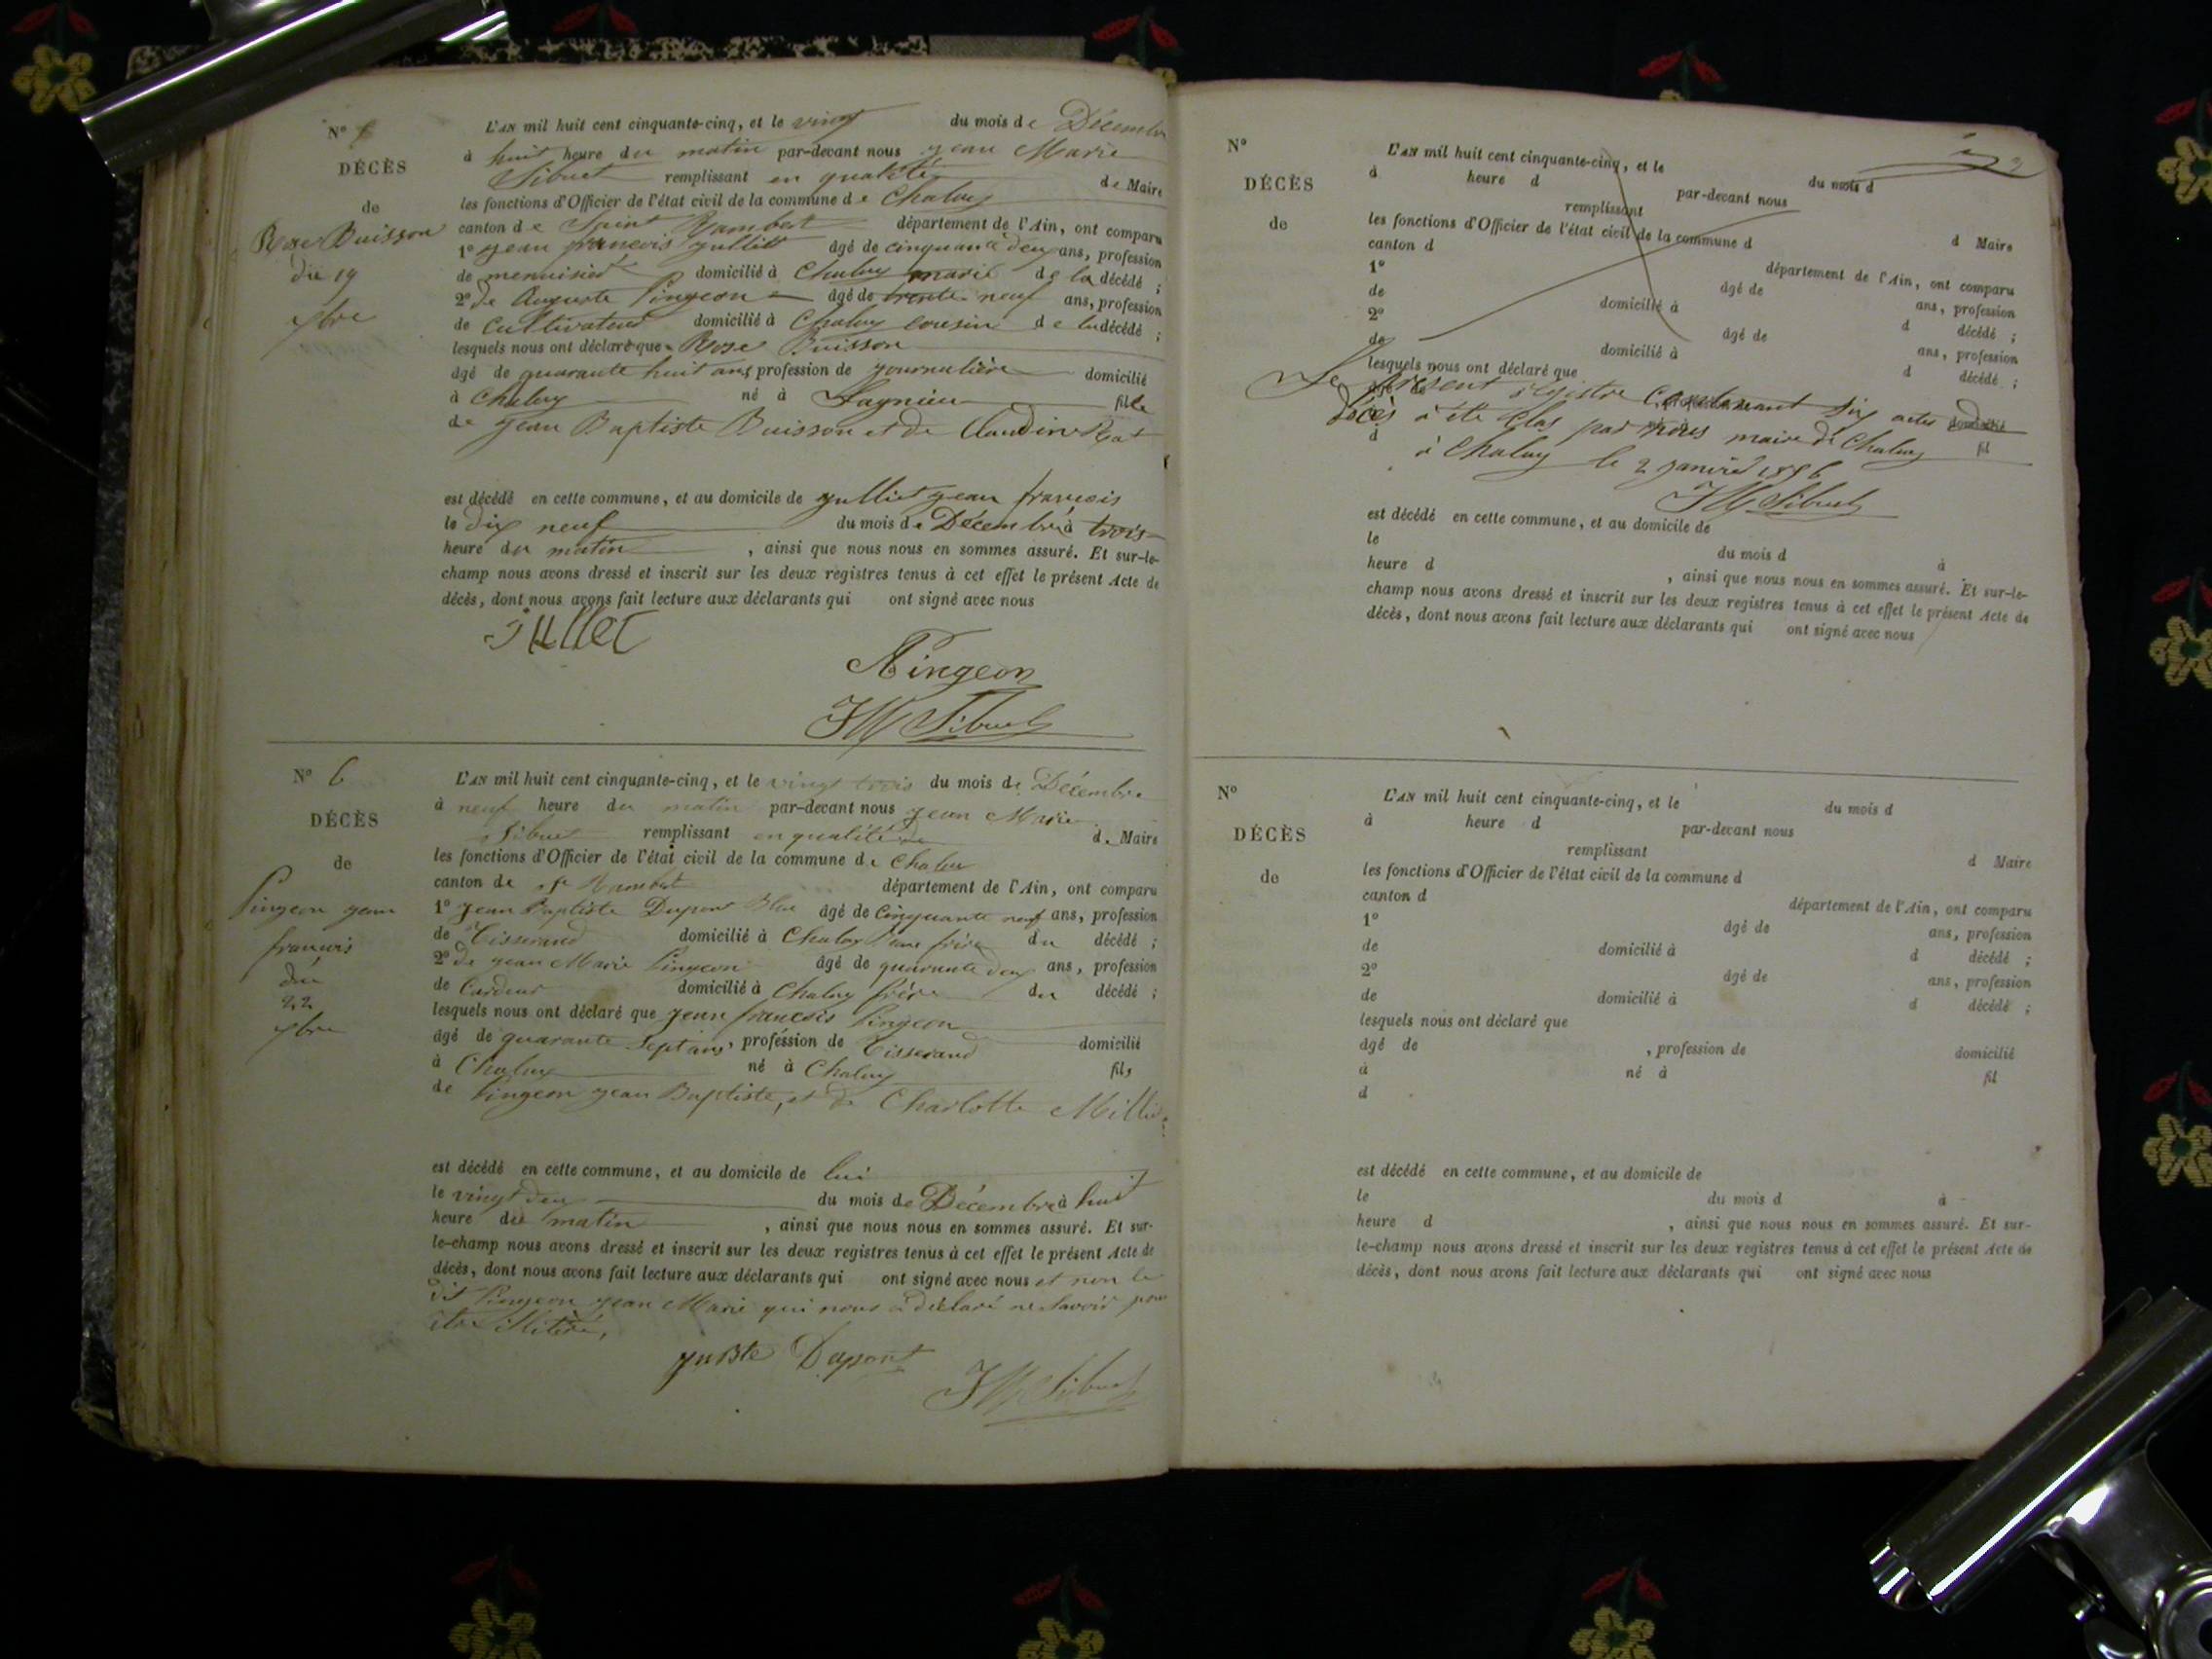 N°
DÉCÈS
de
Rose Buisson
du 19
xbre
L'AN mil huit cent cinquante-cinq, et le vingt du mois de Décembre
à huit heure du matin par-devant nous Jean Marie
Sibuet remplissant en qualité de Maire
les fonctions d'Officier de l'état civil de la commune de Chaley
canton de Saint Rambert département de l'Ain, ont comparu
1° Jean françois Julliet âgé de cinquante deux ans, profession
de menuisier domicilié à Chaley marie de la décédé ;
2° de Auguste Pingeon âgé de trente neuf ans, profession
de Cultivateur domicilié à Chaley cousin de la décédé ;
lesquels nous ont déclaré que Rose Buisson
âgé de quarante huit ans profession de journalière domicilié
à Chaley né à Lagnieu fille
de Jean Baptiste Buisson et de Claudine
est décédé en cette commune, et au domicile de Julliet Jean françois
le dix neuf du mois de Décembre à trois
heure du matin , ainsi que nous nous en sommes assuré. Et sur-le-
champ nous avons dressé et inscrit sur les deux registres tenus à cet effet le présent Acte de
décès, dont nous avons fait lecture aux déclarants qui ont signé avec nous
Jullet
APingeon
JM Sibuet
N° 6
DÉCÈS
de
Pingeon Jean
françois
du
22
xbre
L'AN mil huit cent cinquante-cinq, et le vingt trois du mois de Décembre
à neuf heure du matin par-devant nous Jean Marie
Sibuet remplissant en qualité de d. Maire
les fonctions d'Officier de l'état civil de la commune de Chaley
canton de St Rambert département de l'Ain, ont comparu
1° Jean Baptiste Dupont âgé de Cinquante neuf ans, profession
de Tisserand domicilié à Chaley frère du décédé ;
2° de Jean Marie Pingeon âgé de quarante deux ans, profession
de Cardeur domicilié à Chaley frère du décédé ;
lesquels nous ont déclaré que Jean françois Pingeon
âgé de quarante Sept ans, profession de Tisserand domicilié
à Chaley né à Chaley fils
de Pingeon Jean Baptiste, et de Charlotte
est décédé en cette commune, et au domicile de lui
le vingt deux du mois de Décembre à huit
heure du matin , ainsi que nous nous en sommes assuré. Et sur-
le-champ nous avons dressé et inscrit sur les deux registres tenus à cet effet le présent Acte de
décès, dont nous avons fait lecture aux déclarants qui ont signé avec nous et non le
dit Pingeon Jean Marie qui nous a déclaré ne Savoir pour
Dupont
JM Sibuet
N°
DÉCÈS
de
L'AN mil huit cent cinquante-cinq, et le du mois d
à heure d par-devant nous
remplissant d Maire
les fonctions d'Officier de l'état civil de la commune d
canton d département de l'Ain, ont comparu
1° âgé de ans, profession
de domicilié à d décédé ;
2° âgé de ans, profession
de domicilié à d décédé ;
lesquels nous ont déclaré que
Le présent Registre Contenant Six actes de
décès à été Clos par nous maire de Chaley
à Chaley le 2 janvier 1856
JM Sibuet
est décédé en cette commune, et au domicile de
le du mois d à
heure d , ainsi que nous nous en sommes assuré. Et sur-le-
champ nous avons dressé et inscrit sur les deux registres tenus à cet effet le présent Acte de
décès, dont nous avons fait lecture aux déclarants qui ont signé avec nous
N°
DÉCÈS
de
L'AN mil huit cent cinquante-cinq, et le du mois d
à heure d par-devant nous
remplissant d Maire
les fonctions d'Officier de l'état civil de la commune d
canton d département de l'Ain, ont comparu
1° âgé de ans, profession
de domicilié à d décédé ;
2° âgé de ans, profession
de domicilié à d décédé ;
lesquels nous ont déclaré que
âgé de , profession de domicilié
à né à fil
d
est décédé en cette commune, et au domicile de
le du mois d à
heure d , ainsi que nous nous en sommes assuré. Et sur-
le-champ nous avons dressé et inscrit sur les deux registres tenus à cet effet le présent Acte de
décès, dont nous avons fait lecture aux déclarants qui ont signé avec nous